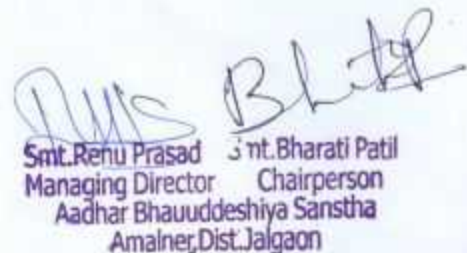 Smt.Renu Prasad Smt.Bharati Patil
Managing Director Chairperson
Aadhar Bhauuddeshiya Sanstha
Amalner,Dist.Jalgaon